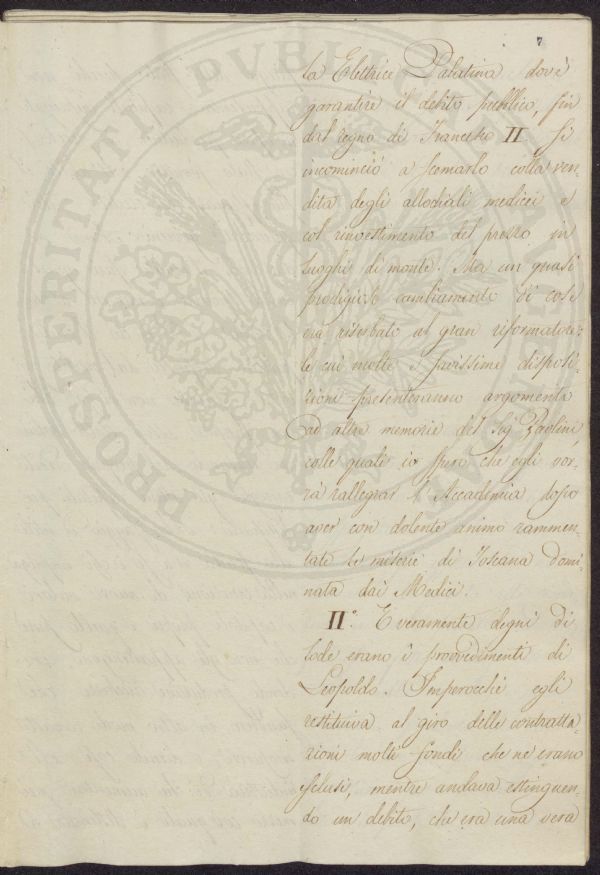 7
la Elettrice Palatina dovè
garantire il debito pubblico, fin
dal regno di Francesco II. si
incominciò a scemarlo colla ven-
dita degli allodiali medicei e
col rinvestimento del prezzo in
luoghi di monte. Ma un quasi
prodigioso cambiamento di cose
era riserbato al gran riformatore:
le cui molte e savissime disposi-
zioni presenteranno argomento
ad altre memorie del Sig. Paolini,
colle quali io spero che egli vor-
rà rallegrar l'Accademia, dopo
aver con dolente animo rammen-
tate le miserie di Toscana domi-
nata dai Medici.
II°. E veramente degni di
lode erano i provvedimenti di
Leopoldo. Imperocchè egli
restituiva al giro delle contratta-
zioni molti fondi che ne erano
esclusi, mentre andava estinguen-
do un debito, che era una vera
PROSPERITATI PVBLICAE AVGENDAE